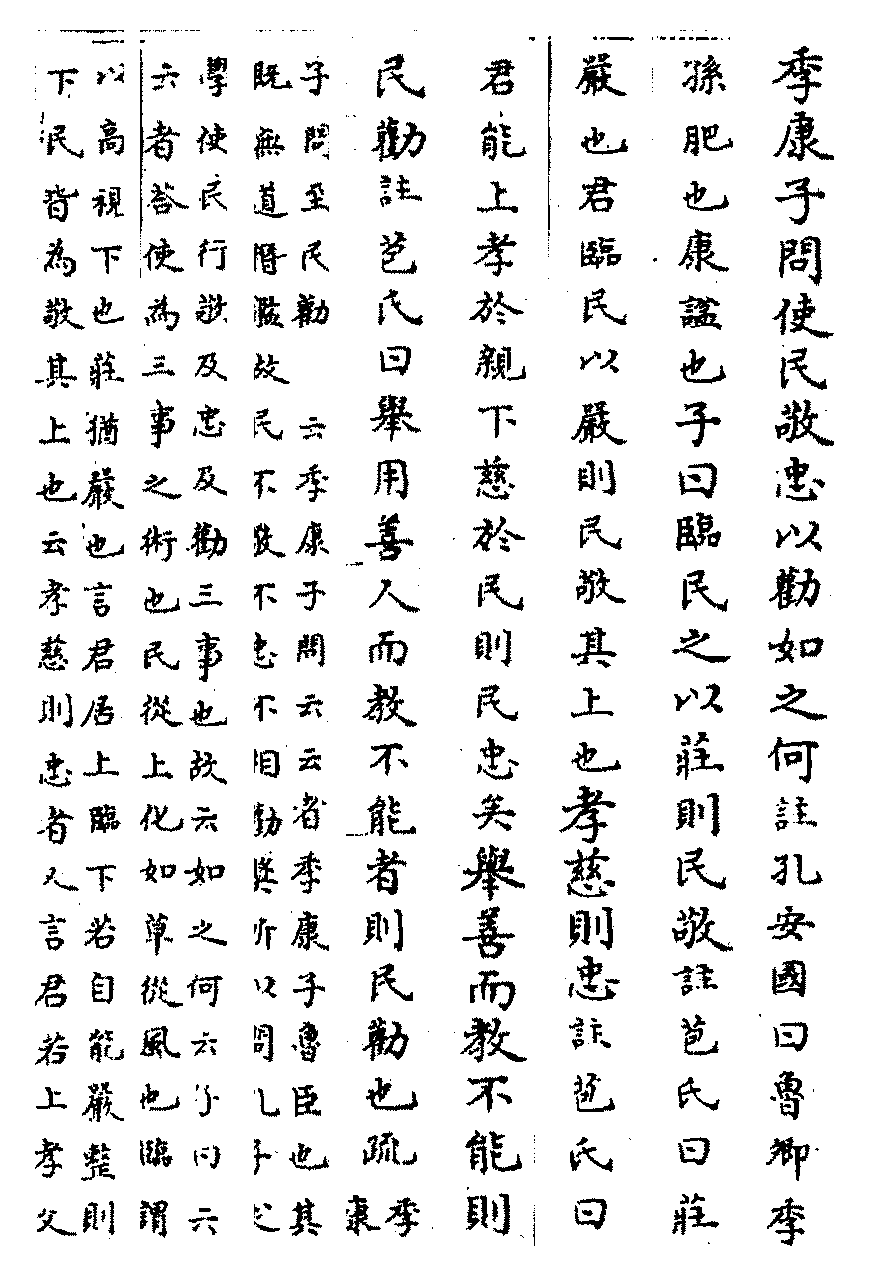 季康子問使民敬忠以勸如之何註孔安國曰魯卿季
孫肥也康謚也子曰臨民之以莊則民敬註苞氏曰莊
嚴也君臨民以嚴則民敬其上也孝慈則忠註苞氏曰
君能上孝於親下慈於民則民忠矣舉善而教不能則
民勸註苞氏曰舉用善人而教不能者則民勸也疏季康
子問至民勸 云季康子問云云者季康子魯臣也其
既無道僭濫故民不敬不忠不相勸奬所以問孔子求
學使民行敬及忠及勸三事也故云如之何云子曰云
云者荅使為三事之術也民從上化如草從風也臨謂
以高視下也莊猶嚴也言君居上臨下若自能嚴整則
下民皆為敬其上也云孝慈則忠者又言君若上孝父